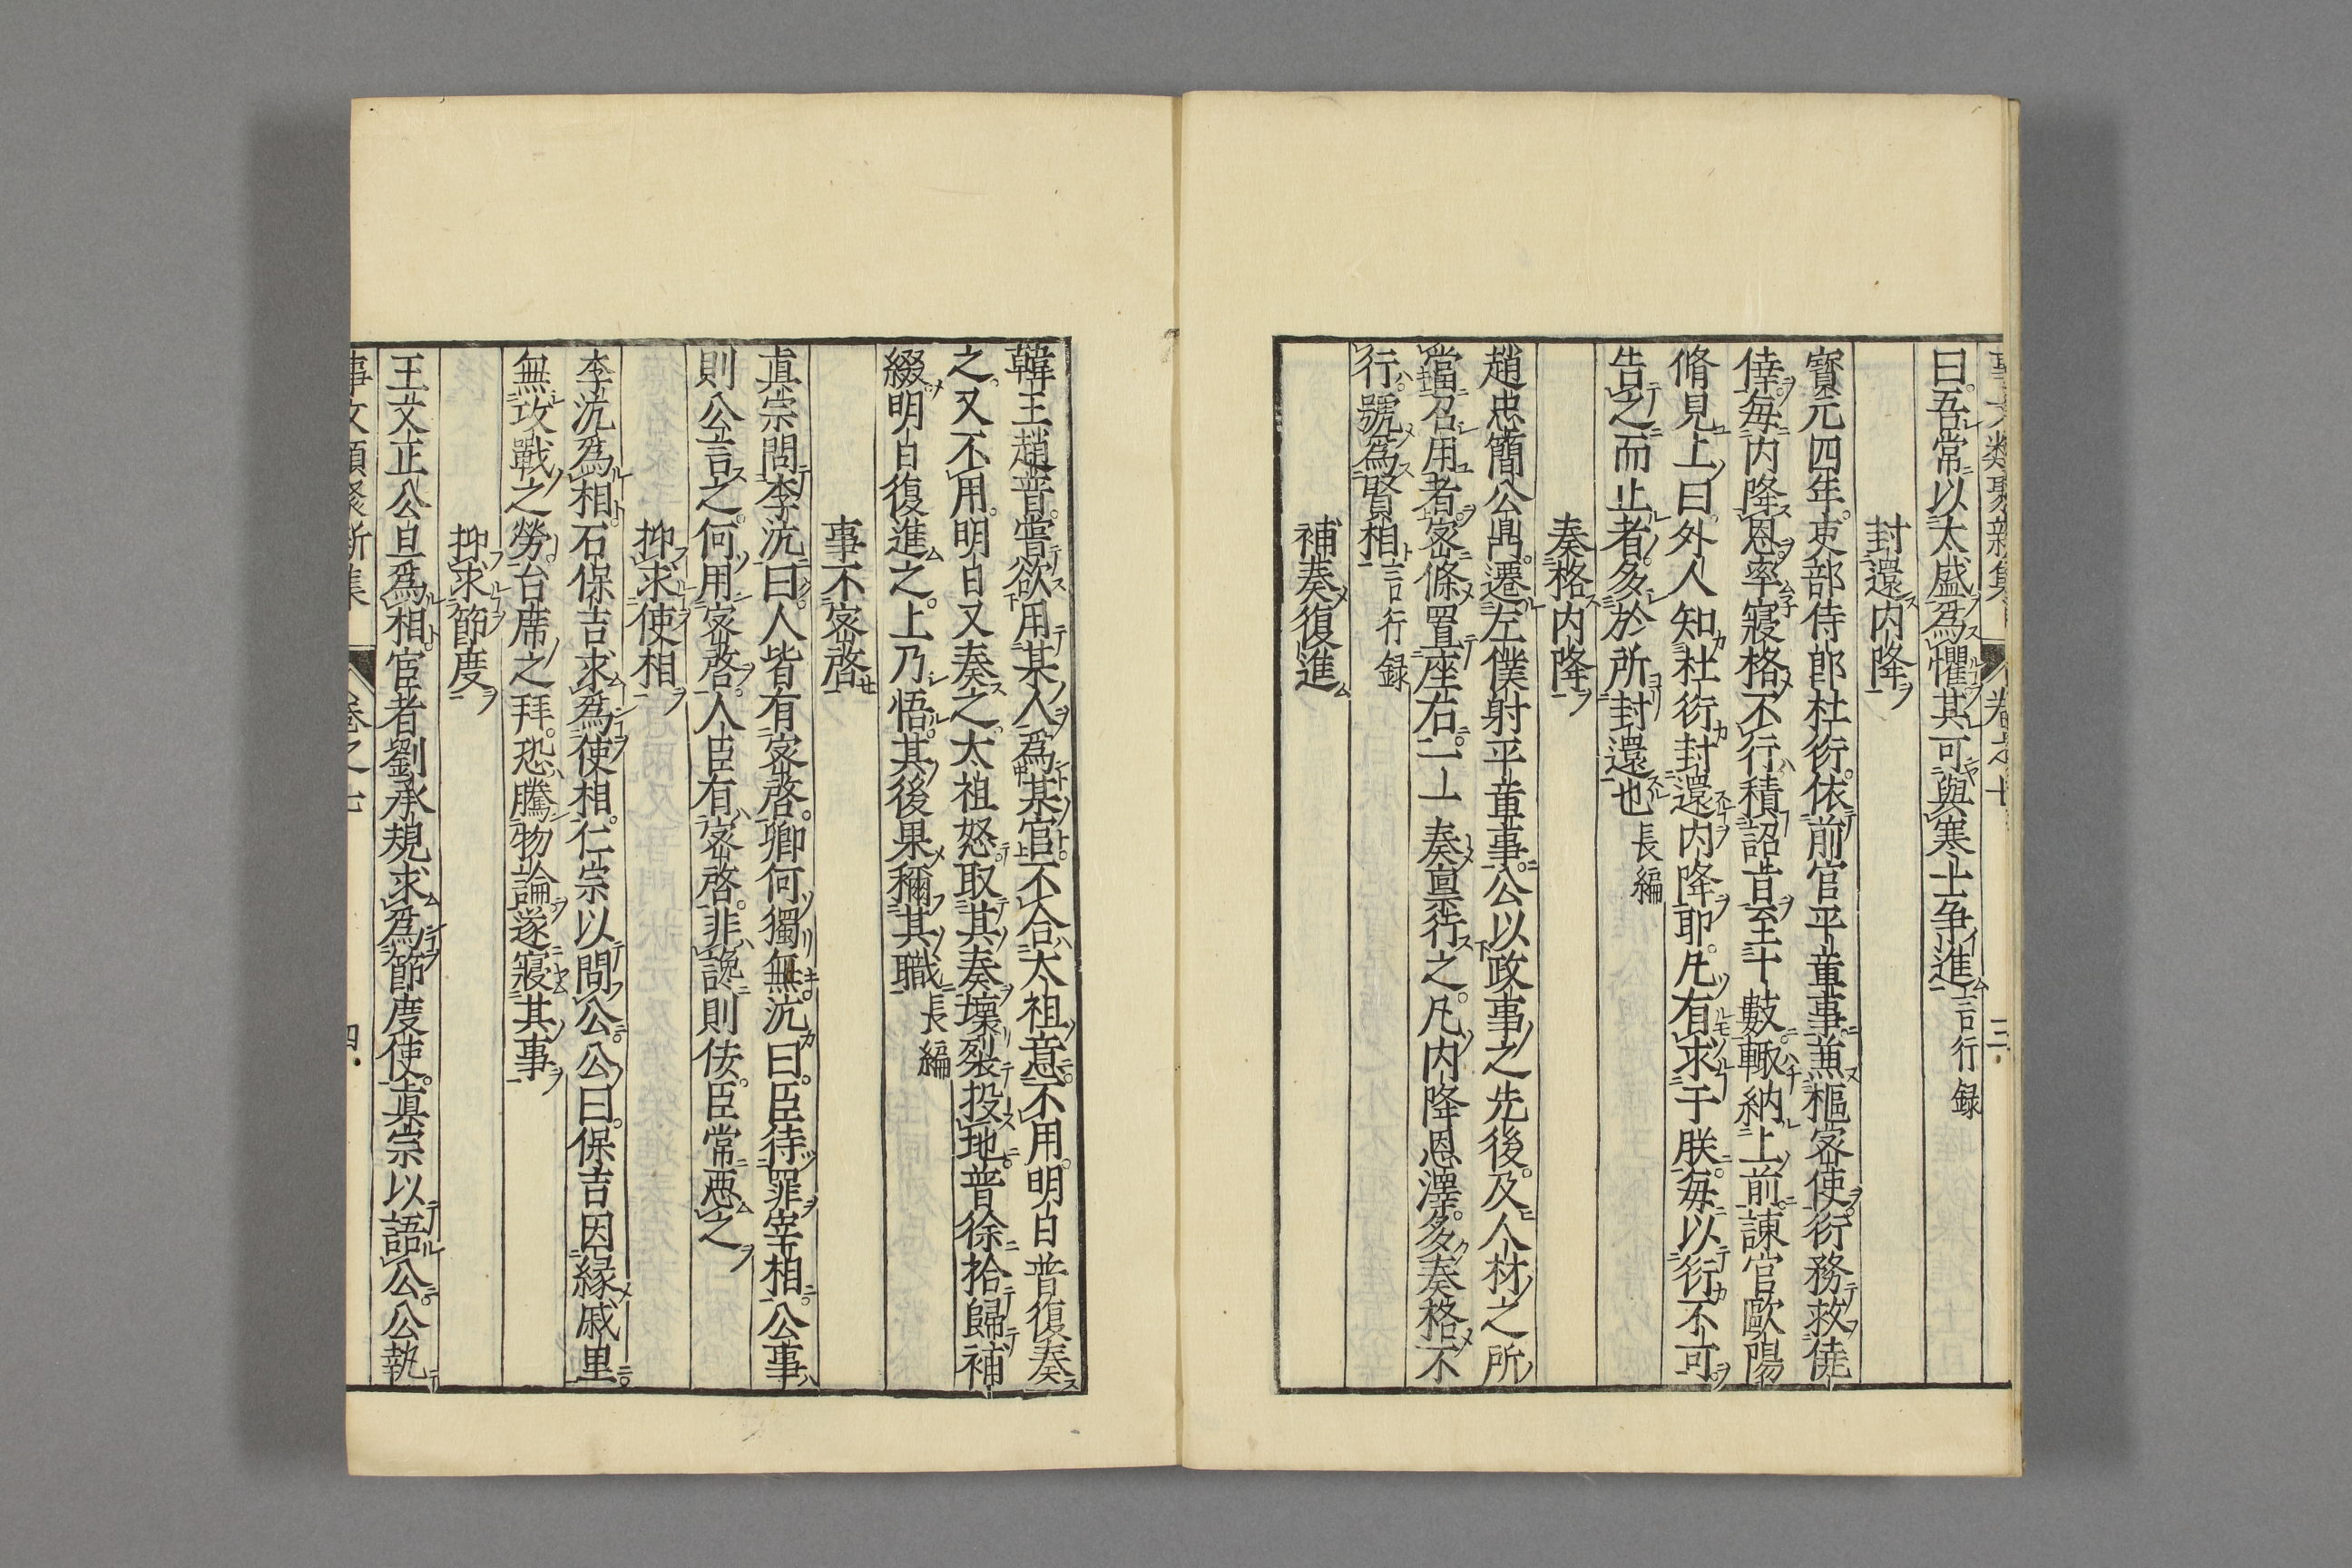 事文類聚新集 卷之七 三
曰。吾常以太盛爲懼。其可與寒士争進 言行録
封還内降
寳元四年。吏部侍郎杜衍。依前官平章事兼樞宻使。衍務救僥
倖。毎内降恩。率寢格不行。積詔㫖至十數。輙納上前。諫官歐陽
脩見上。曰外人知杜衍封還内降耶。凡有求于朕。毎以衍不可
告之而止者。多於所封還也 長編
奏格内降
趙忠簡公鼎。遷左僕射平章事。公以政事之先後。及人材之所
當召用者。宻條置座右。一一奏禀行之。凡内降恩澤。多奏格不
行。號爲賢相 言行録
補奏復進
韓王趙普。嘗欲用某人爲某官。不合太祖意。不用。明白普復奏
之。又不用。明白又奏之。太祖怒。取其奏壞裂投地。普徐拾歸補
綴。明白復進之。上乃悟。其後果稱其職 長編
事不宻啓
眞宗問李沆曰。人皆有宻啓。卿何獨無。沆曰。臣待罪宰相。公事
則公言之。何用宻啓。人臣有宻啓。非讒則佞。臣常惡之
抑求使相
李沆爲相。石保吉求爲使相。仁宗以問公。公曰。保吉因縁戚里。
無攻戰之勞。台席之拜。恐騰物論。遂寢其事
抑求節度
王文正公旦爲相。宦者劉承規求爲節度使。眞宗以語公。公執
事文類聚新集 卷之七 四